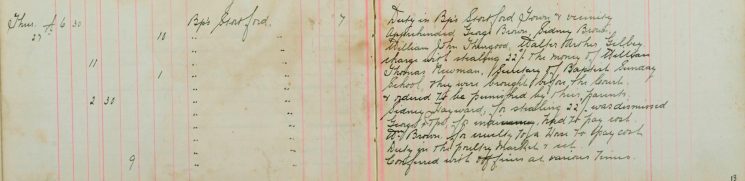 Thurs. 6 30 Bp's Stortford. 7 Duty in Bp's Stortford Town & vicinity
27 10 " Apprehended, George Brown, Sidney Brown,
William John Thurgood, Walter Gilbey
11 " charge with stealing 22/ the money of William
1 " Thomas Newman, Secretary of Baptist Sunday
" School, they were brought before the Court
2 30 " & ordered to be punished by their parents.
" Sidney Hayward, for stealing 22/ was dismissed
" George for had to pay cost.
" Wm Brown for cruelty to a Horse to pay cost
" Duty in the poultry Market &
9 " Conferred with officers at various Times.
13